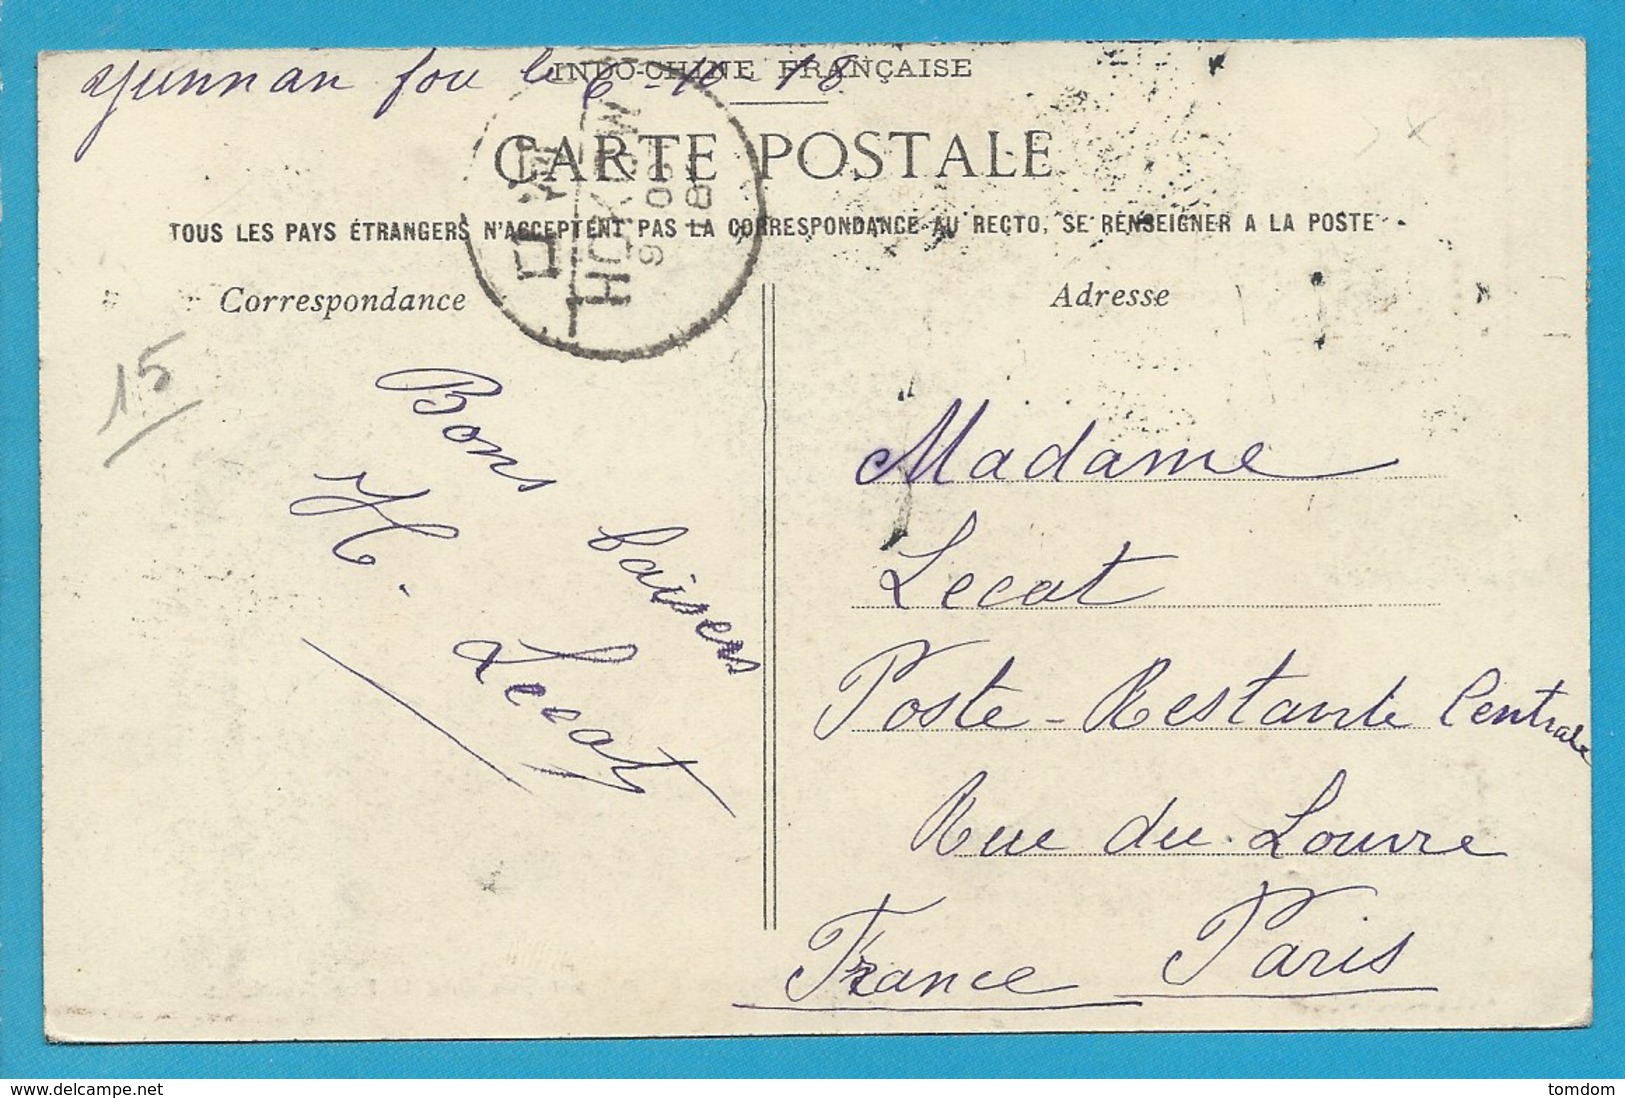 INDO-CHINE FRANÇAISE
yunnan fou le 6-10-18
CARTE POSTALE
TOUS LES PAYS ÉTRANGERS N'ACCEPTENT PAS LA CORRESPONDANCE AU RECTO, SE RENSEIGNER A LA POSTE
Correspondance
Adresse
口
HOKOW
9 OCT
8
15
Bons baisers
H. Lecat
Madame
Lecat
Poste-Restante Centrale
Rue du Louvre
France Paris
www.delcampe.net
tomdom